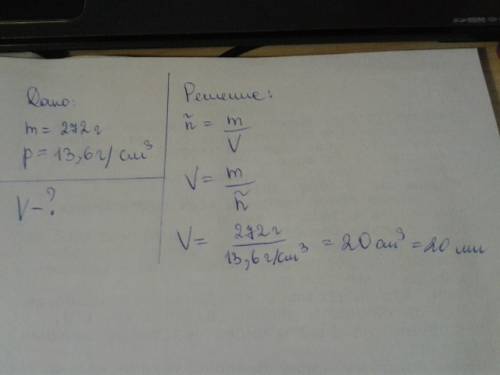 Дано:
m = 272 г
p = 13,6 г/см³
V - ?
Решение:
ñ = m/V
V = m/ñ
V = 272 г/13,6 г/см³ = 20 см³ = 20 мл